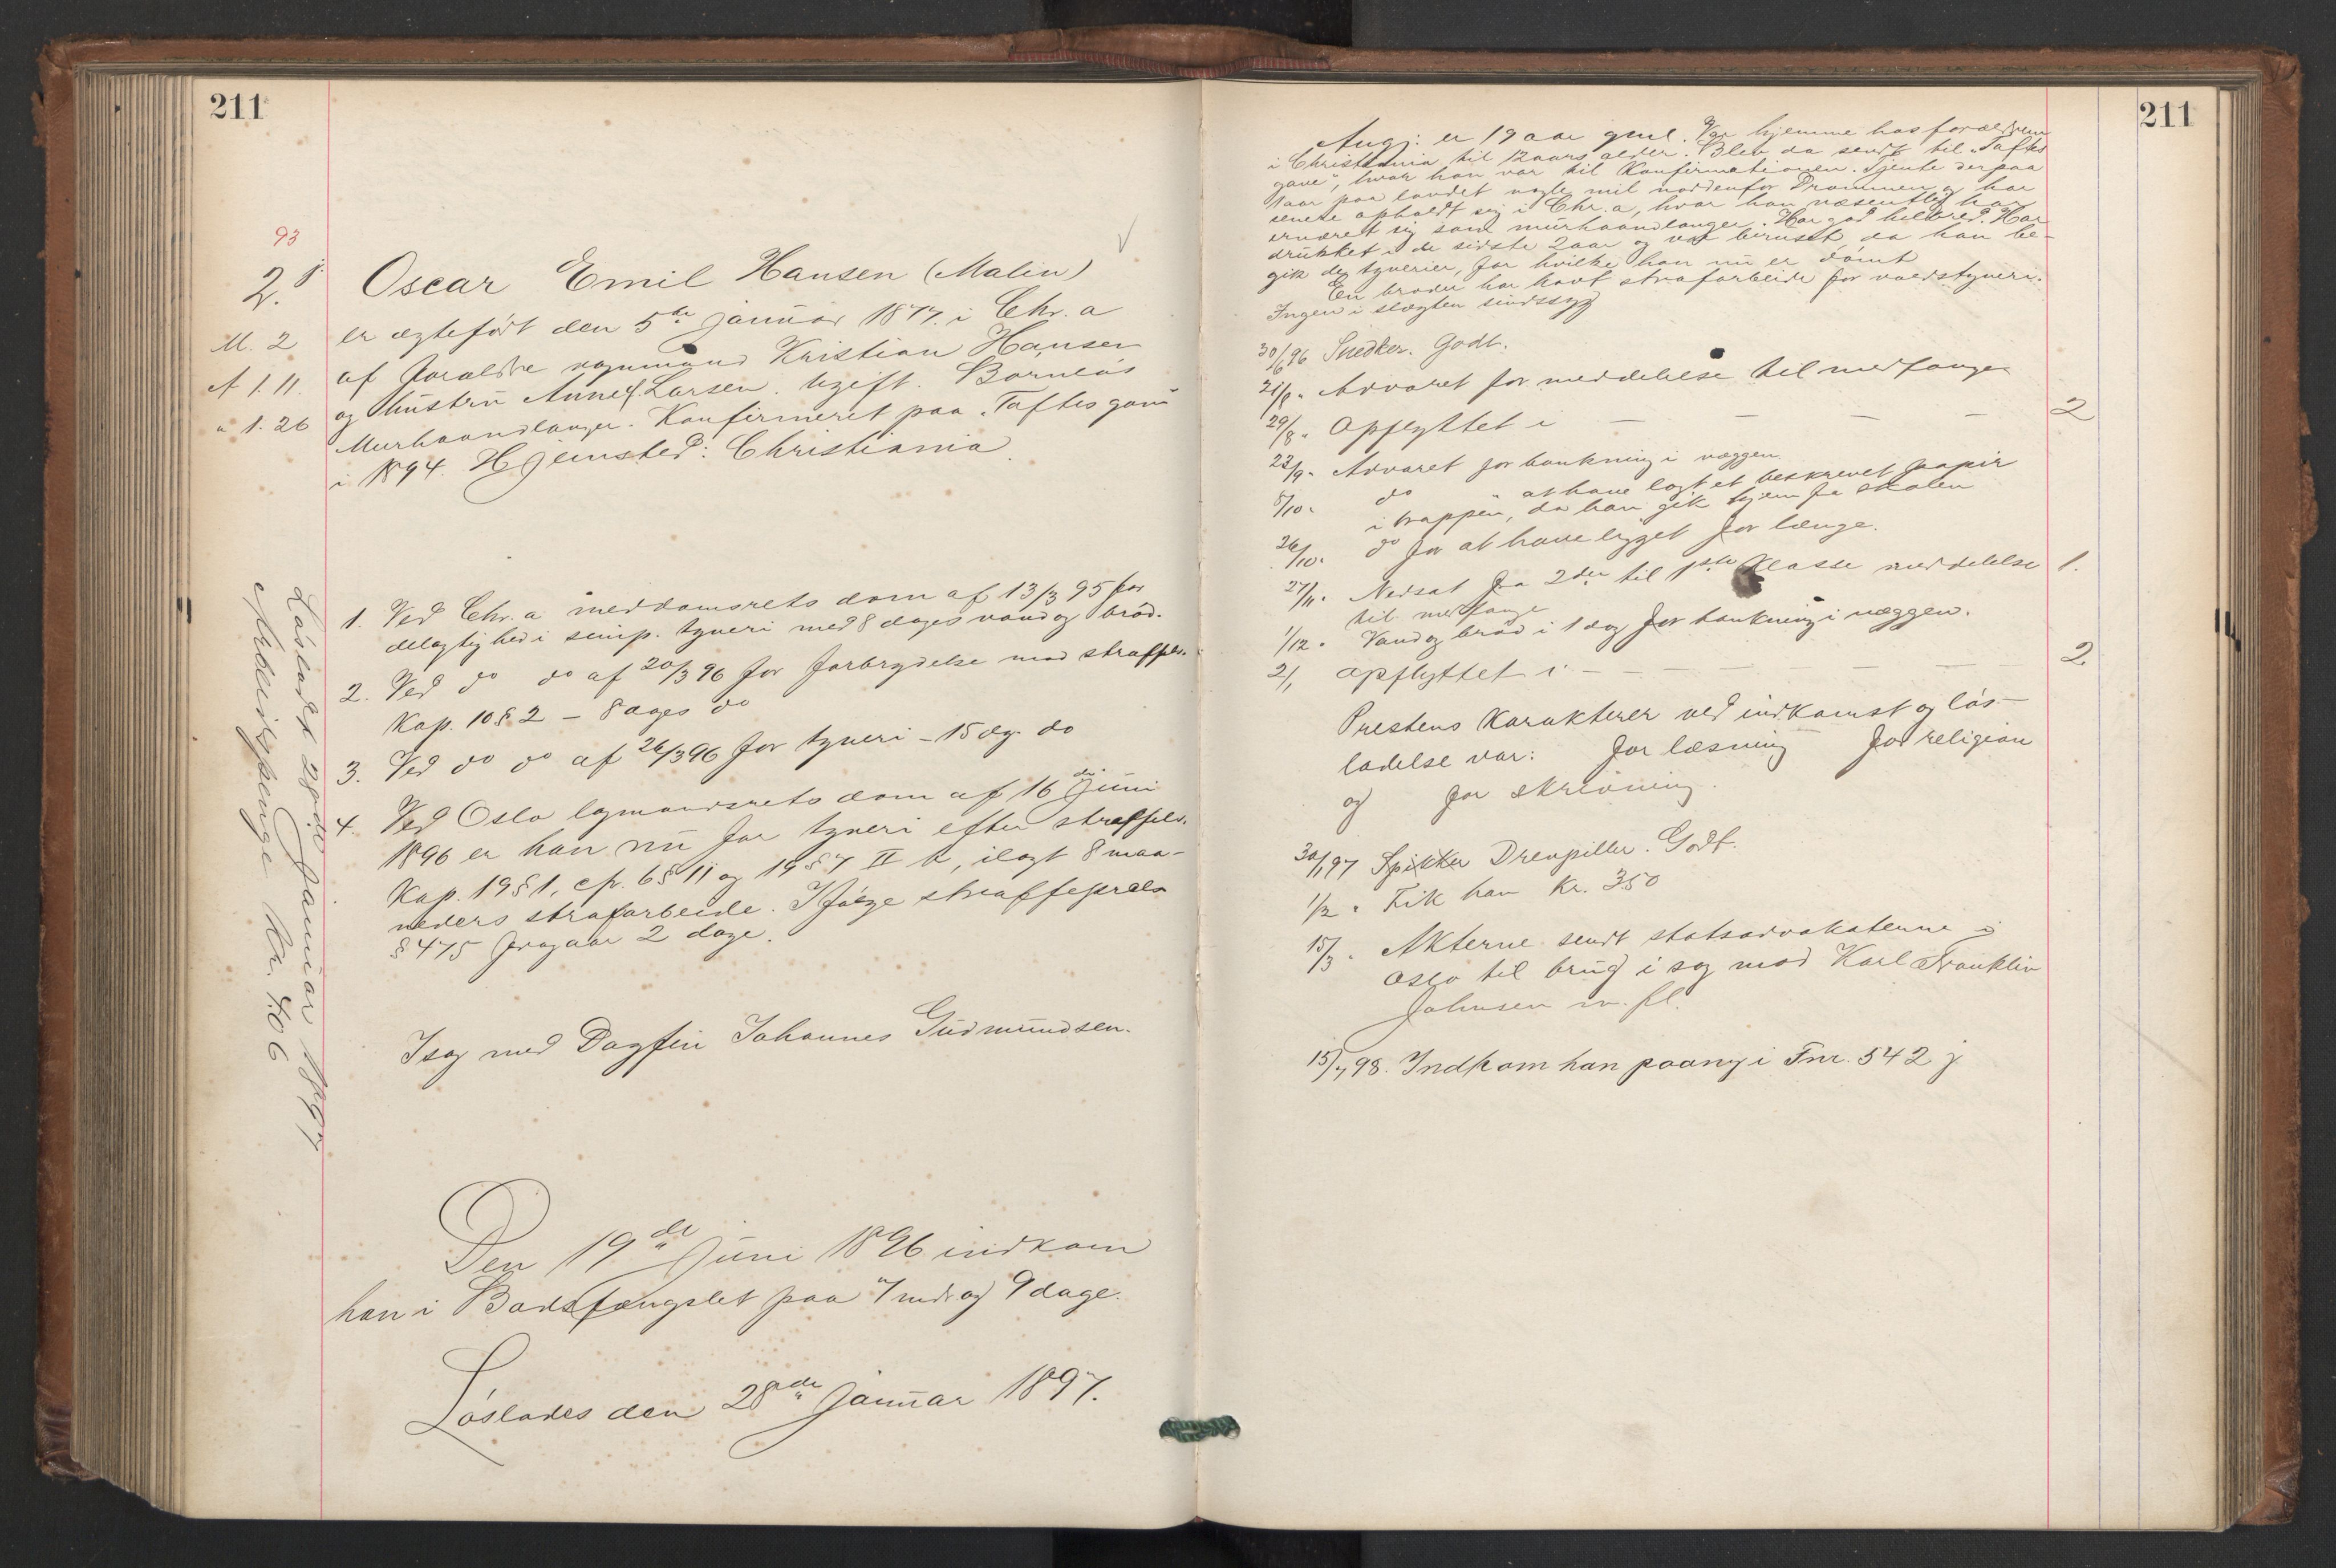 211
93
2.
M. 2
A 1. 11.
" 1. 26
Oscar Emil Hansen (Malin)
er ægtefødt den 5te januar 1877. i Chr.a
af forældre vognmand Kristian Hansen
og hustru Anne Larsen. Ugift. Barnløs
Murhaandlanger. Konfirmeret paa "Taftes gave"
i 1894. Hjemsted: Christiania.
1. Ved Chr.a meddomsrets dom af 13/3 95 for
delagtighed i simp. tyveri med 8 dages vand og brød.
2. Ved do do af 20/3 96 for forbrydelse mod straffelo.
Kap. 10 § 2 – 8 dages do
3. Ved do do af 26/3 96 for tyveri – 15 dg. do
4. Ved Oslo lagmandsrets dom af 16de Juni
1896 er han nu for tyveri efter straffelov.
Kap. 19 § 1, cfr. 6 § 11 og 19 § 7 II b, ilagt 8 maa-
neders strafarbeide. Ifølge straffeprels
§ 475 fragaar 2 dage.
I sag med Dagfin Johannes Gudmundsen.
Den 19de Juni 1896 indkom
han i Bodsfængslet paa 7 mdr og 9 dage.
Løslades den 28de Januar 1897.
Løsladt 28de Januar 1897
Arbeidspenge Kr. 4.06
211
Aug: er 19 aar gml. Var hjemme hos forældrene
i Christiania til 12 aars alder. Blev da sendt til "Taftes
gave", hvor han var til Konfirmationen. Tjente derpaa
1 aar paa landet nogle mil nordenfor Drammen og har
senere opholdt sig i Chr.a, hvor han væsentlig har
ernæret sig som murhaandlanger. Har god helbred. Har
drukket i de sidste 2 aar og var beruset, da han be-
gik de tyverier, for hvilke han nu er dømt
En broder har havt strafarbeide for voldstyveri.
Ingen i slægten sindssyg
30/6 96 Snedker. Godt.
21/8 " Advaret for meddelelse til medfange
29/8 " Opflyttet i – – – – 2
23/9 " Advaret for bankning i væggen.
8/10 " do " at have lagt et beskrevet papir
i trappen, da han gik hjem fra skolen
26/10 " do for at have ligget for længe.
27/11 " Nedsat fra 2den til 1ste Klasse meddelelse 1.
til medfange
1/12 " Vand og brød i 1 dag for bankning i væggen.
2/1 opflyttet i – – – – – – 2.
Prestens Karakterer ved indkomst og løs-
ladelse var: for læsning for religion
og for skrivning.
30/1 97 Drevpiller. Godt.
1/2 " Fik han Kr. 350
15/3 " Akterne sendt statsadvokaterne i
Oslo til brug i sag mod Karl Franklin
Johnsen m. fl.
15/7 98. Indkom han paany i Fnr. 542 j